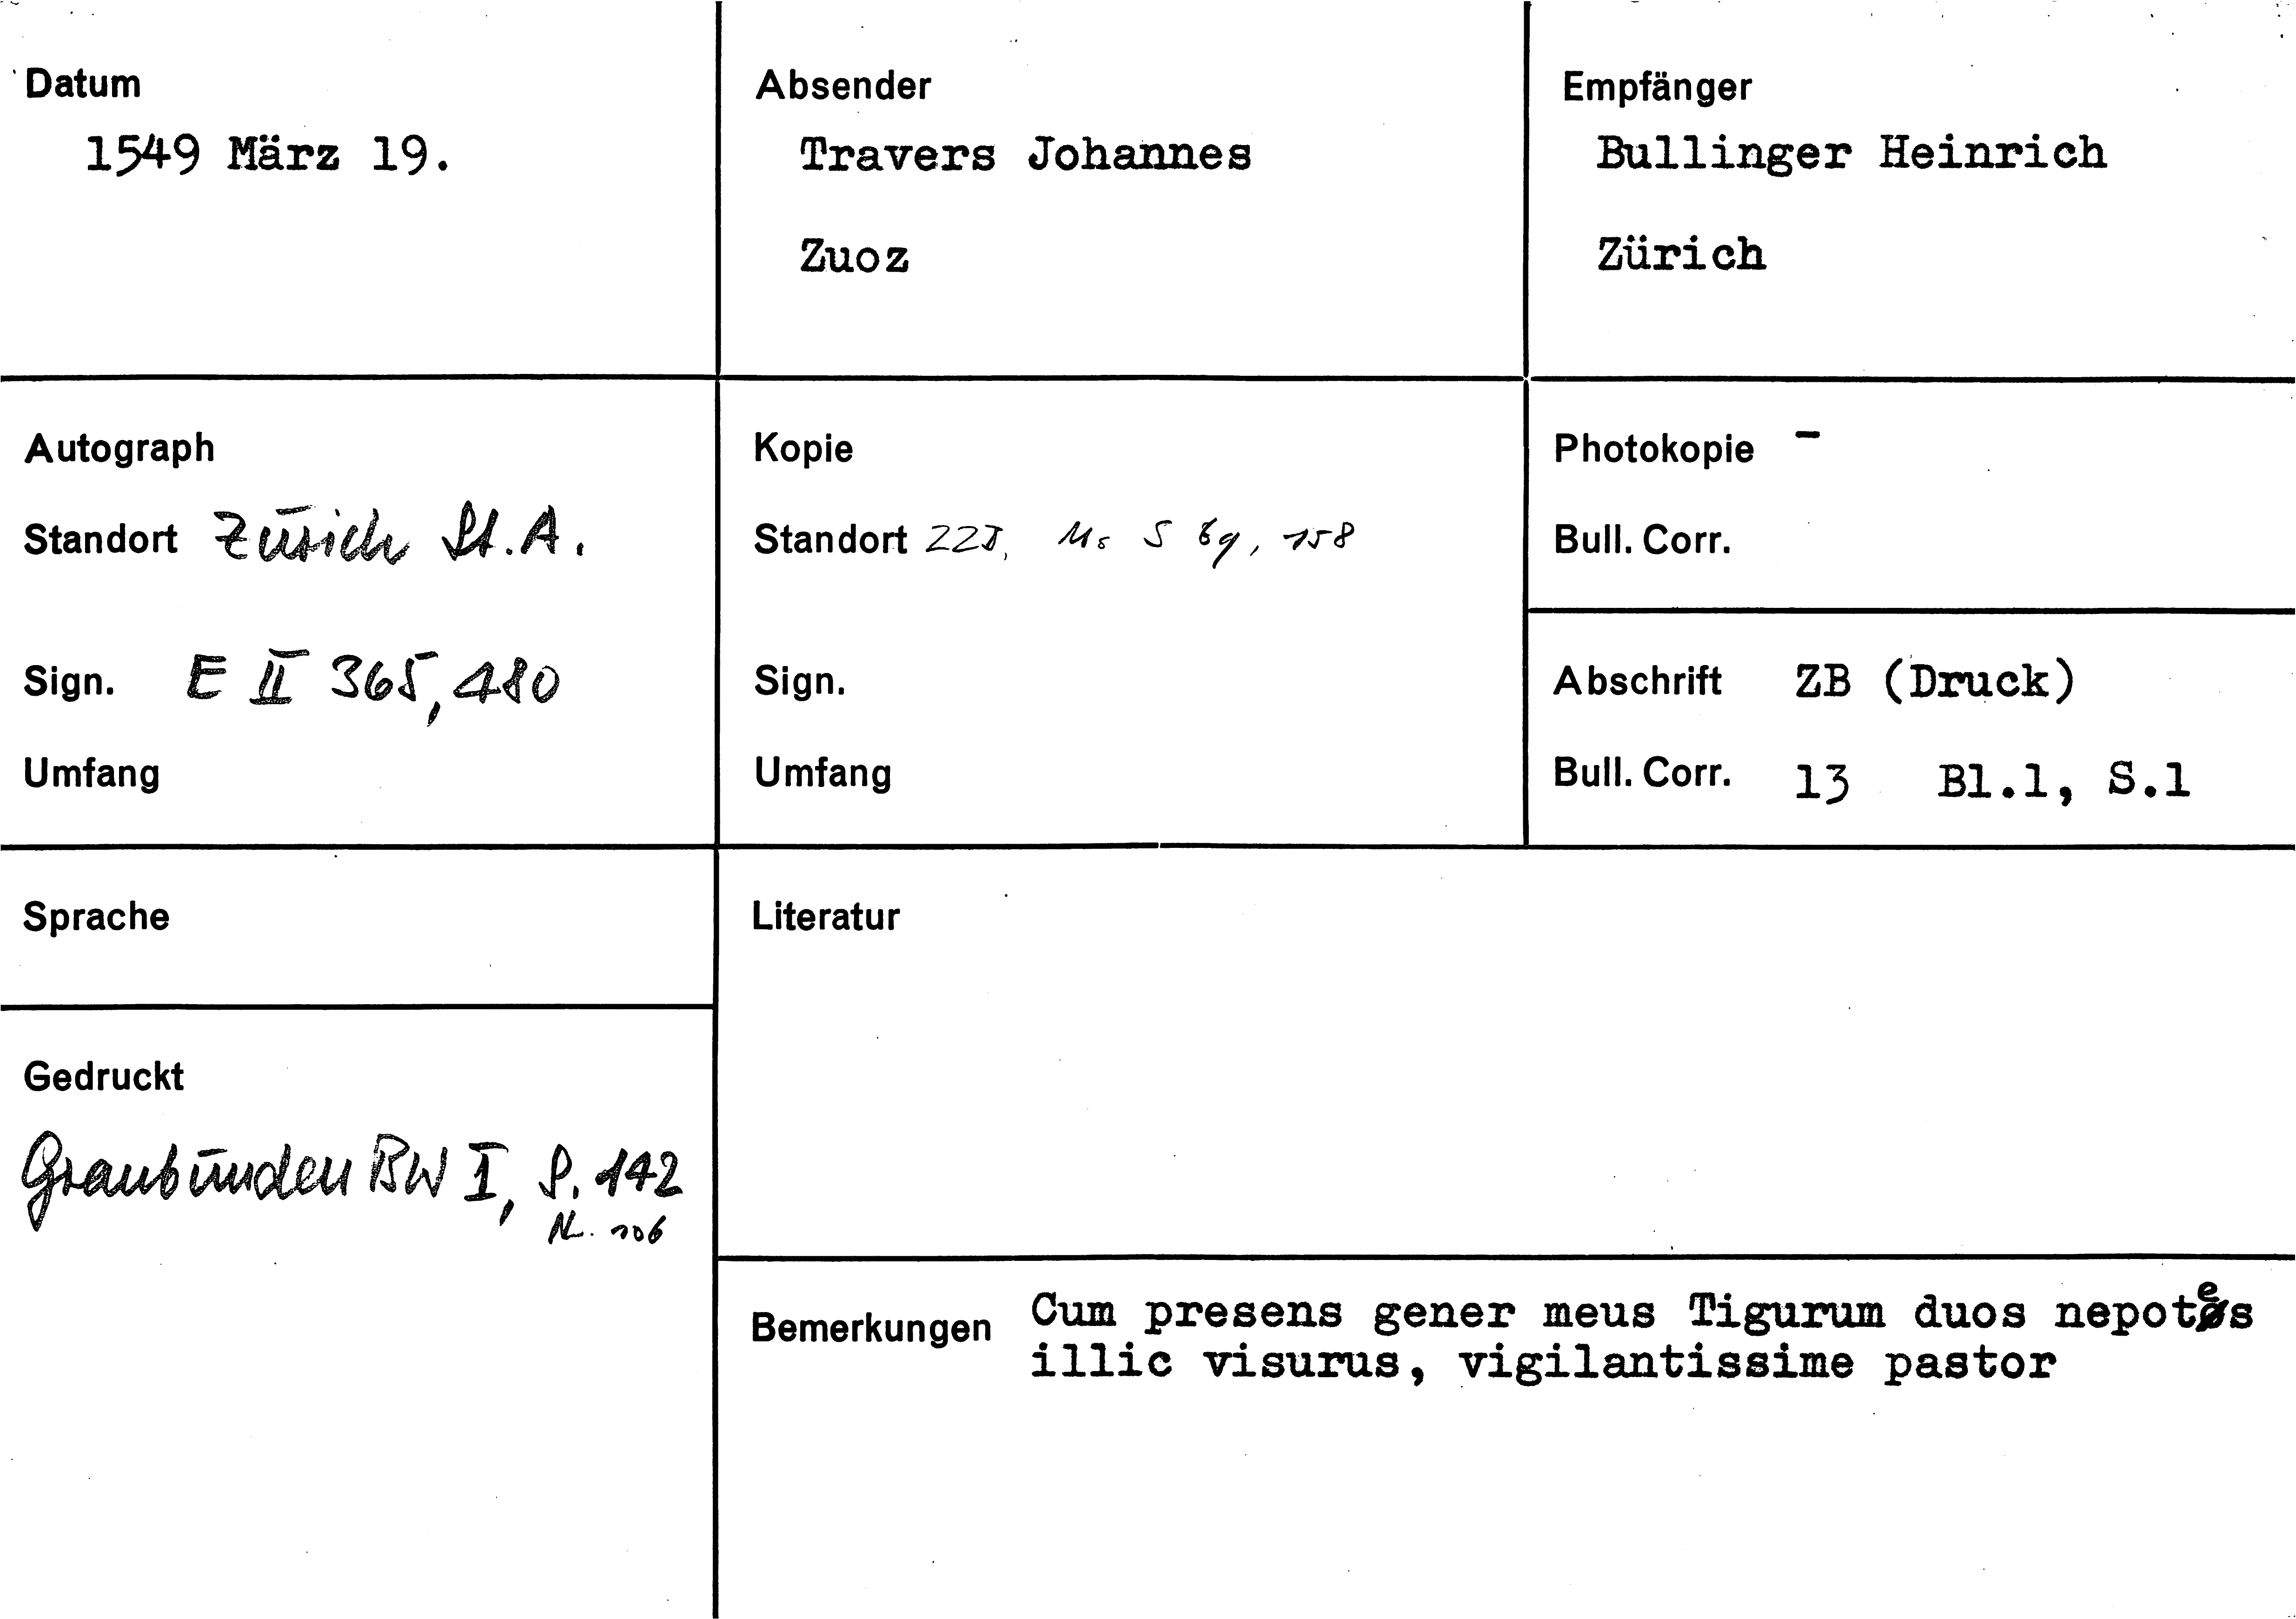 Datum
1549 März 19.
Absender
Travers Johannes
Zuoz
Empfänger
Bullinger Heinrich
Zürich
Autograph
Standort Zürich St.A.
Sign. E II 365, 480
Umfang
Kopie
Standort ZZB, Ms S 69, 158
Sign.
Umfang
Photokopie -
Bull. Corr.
Abschrift ZB (Druck)
Bull. Corr. 13 Bl.1, S.1
Sprache
Literatur
Gedruckt
Graubünden BW I, S. 142
Nr. 106
Bemerkungen Cum presens gener meus Tigurum duos nepotes
illic visurus, vigilantissime pastor